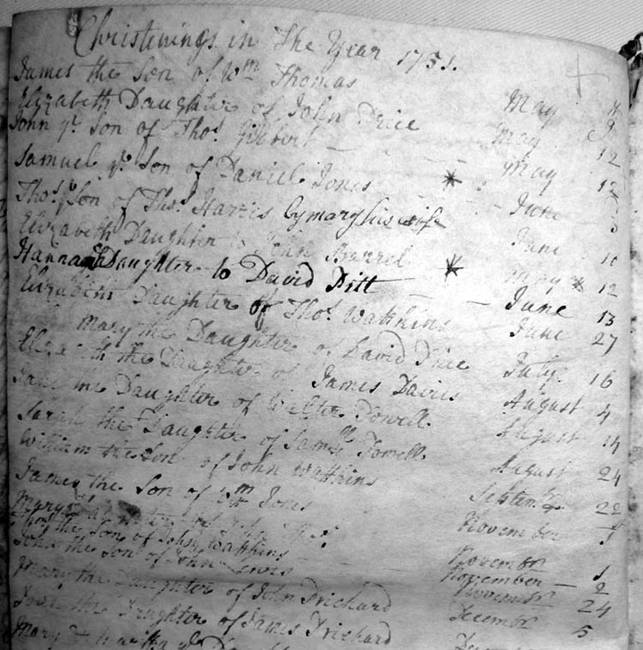 Christenings in The Year 1751.
James the Son of Wm Thomas May
Elizabeth Daughter of John Price May 9
John ye Son of Thos Gilbert May 12
Samuel ye Son of Daniel Jones * June
Thos ye Son of Thos Harris by mary his wife June
Elizabeth Daughter 10
Hannah Daughter to David Pitt * June 13
Elizabeth Daughter of Thos Watkins June 27
Mary the Daughter of David Price July 16
Elizabeth the Daughter of James Davies August 4
Jane the Daughter of Walter Powell August 14
Sarah the Daughter of Samll Powell August 24
William the Son of John Watkins September 22
James the Son of Wm Jones November
Mary November 1
the Son of John Watkins November 2
John the Son of John Lewis November 24
Mary the Daughter of John Prichard December 5
the Daughter of James Prichard
Mary